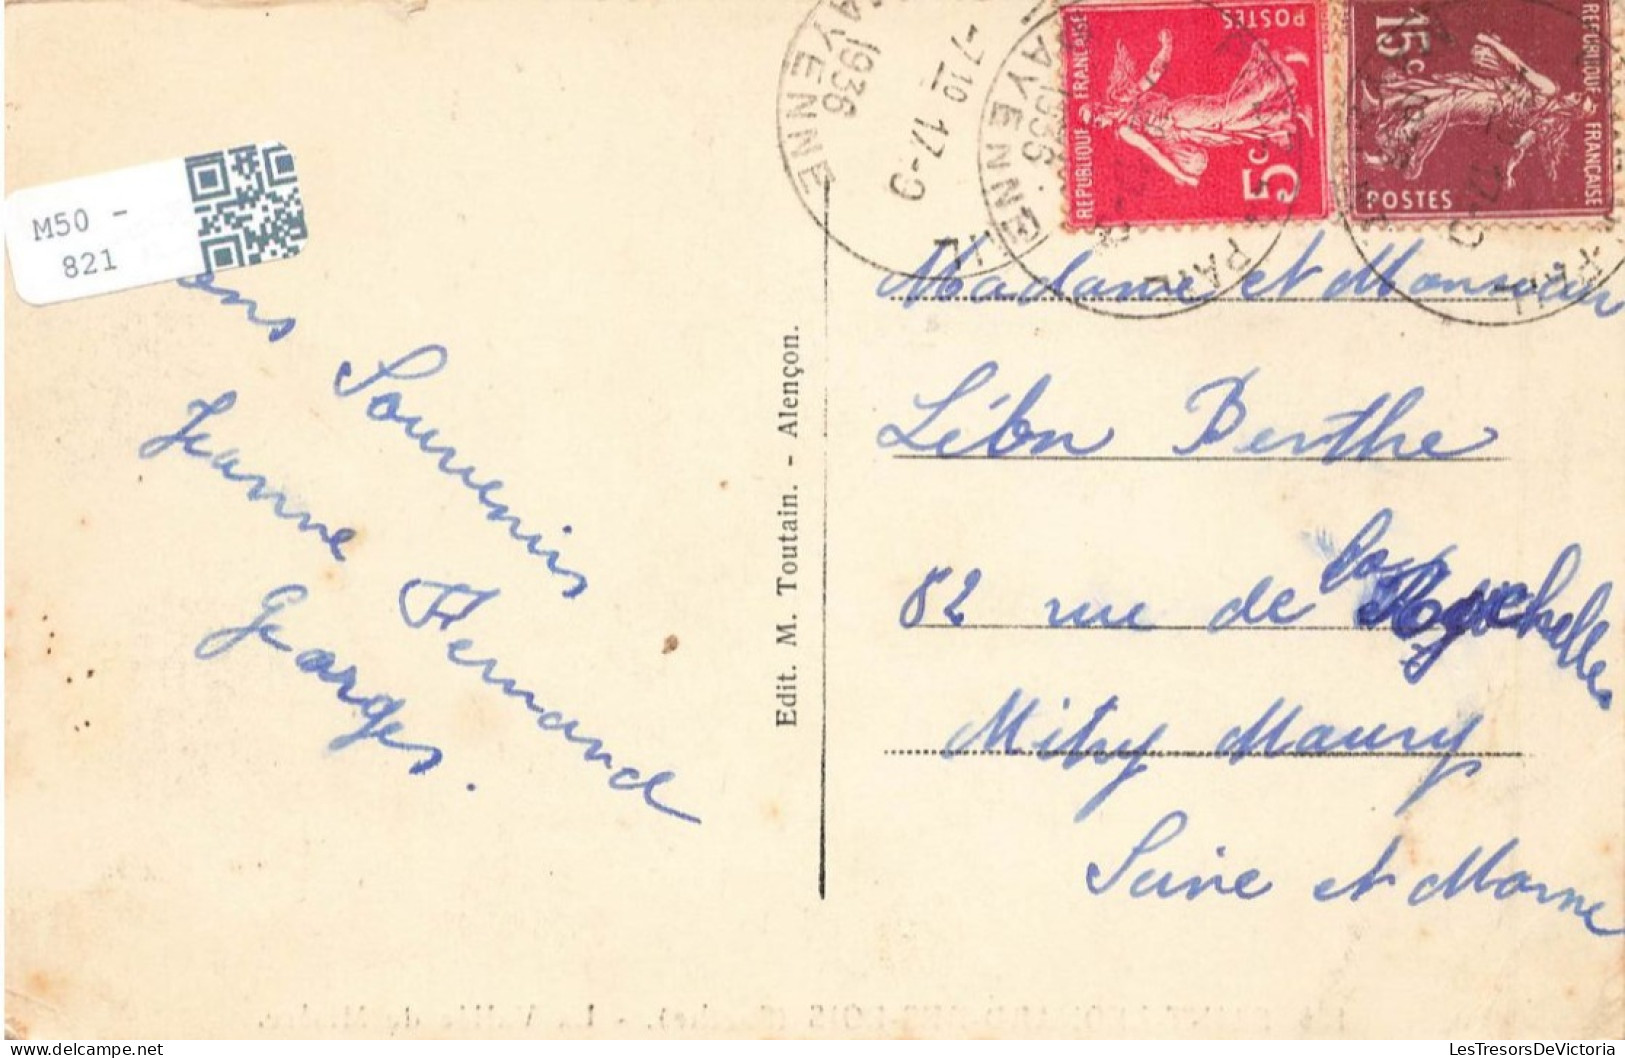 M50 -
821
Souvenirs
Jeanne Fernand
Georges.
Edit. M. Toutain. - Alençon.
1936
-7 10 17-9
MAYENNE
POSTES
REPUBLIQUE FRANCAISE
5c
15c
REPUBLIQUE FRANÇAISE
POSTES
Madame et Monsieur
Léon Berthe
82 rue de la Rochelle
Mitry Maury
Seine et Marne
LesTresorsDeVictoria